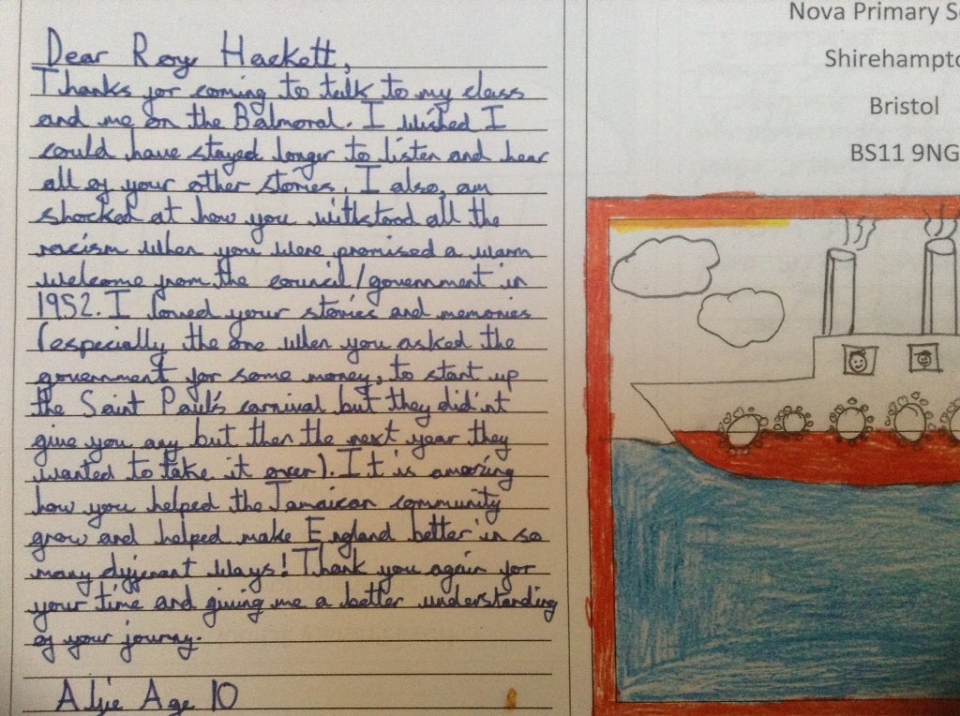 Dear Roy Hackett,
Thanks for coming to talk to my class
and me on the Balmoral. I wished I
could have stayed longer to listen and hear
all of your other stories. I also, am
shocked at how you withstood all the
racism when you were promised a warm
welcome from the council/government in
1952. I loved your stories and memories
(especially the one when you asked the
government for some money, to start up
the Saint Paul's carnival but they did'nt
give you any but then the next year they
wanted to take it over). It is amazing
how you helped the Jamaican community
grow and helped make England better in so
many diffenant ways! Thank you again for
your time and giving me a better understanding
of your journy.
Alfie Age 10
Nova Primary
Bristol
BS11 9NG